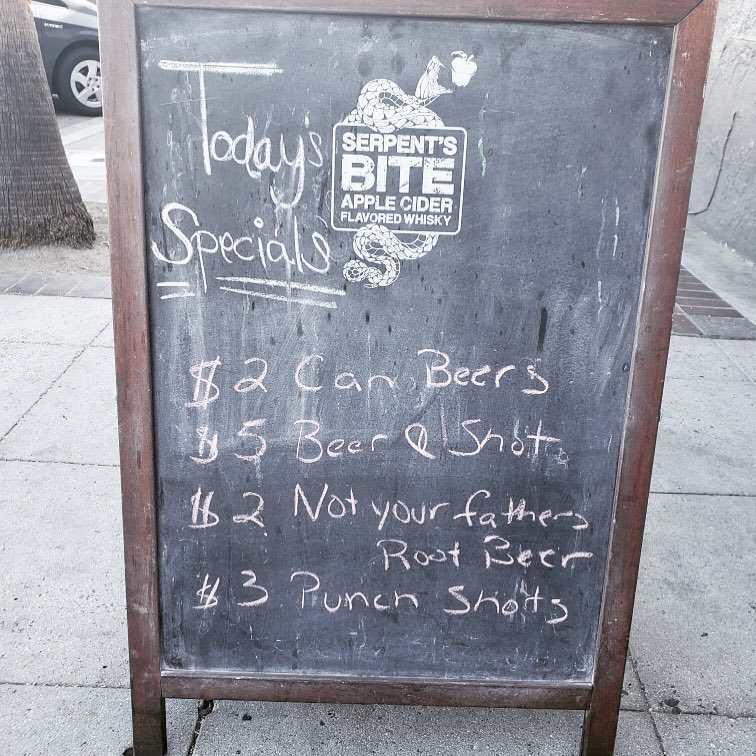 Today's
Specials
SERPENT'S
BITE
APPLE CIDER
FLAVORED WHISKY
$2 Can Beers
$5 Beer & Shot
$2 Not your fathers
Root Beer
$3 Punch Shots